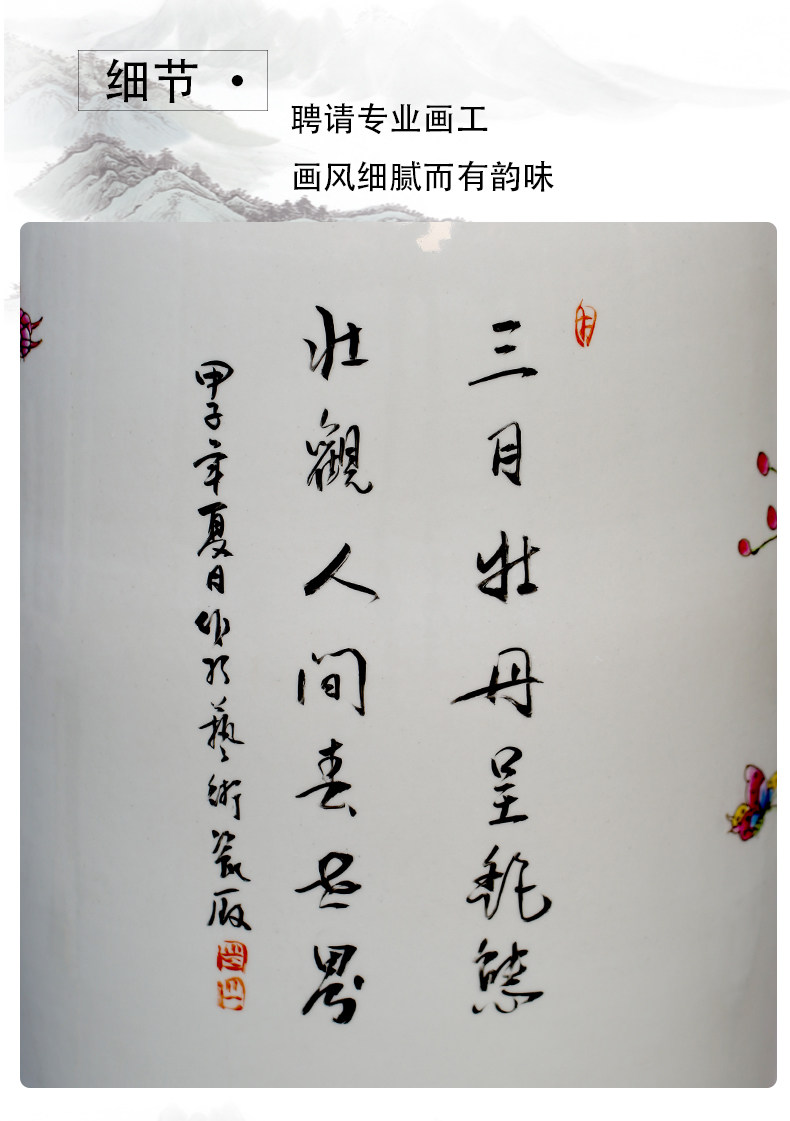 细节·
聘请专业画工
画风细腻而有韵味
三月牡丹呈艳態
壮觀人间春世界
甲子年夏日作於藝術瓷厰